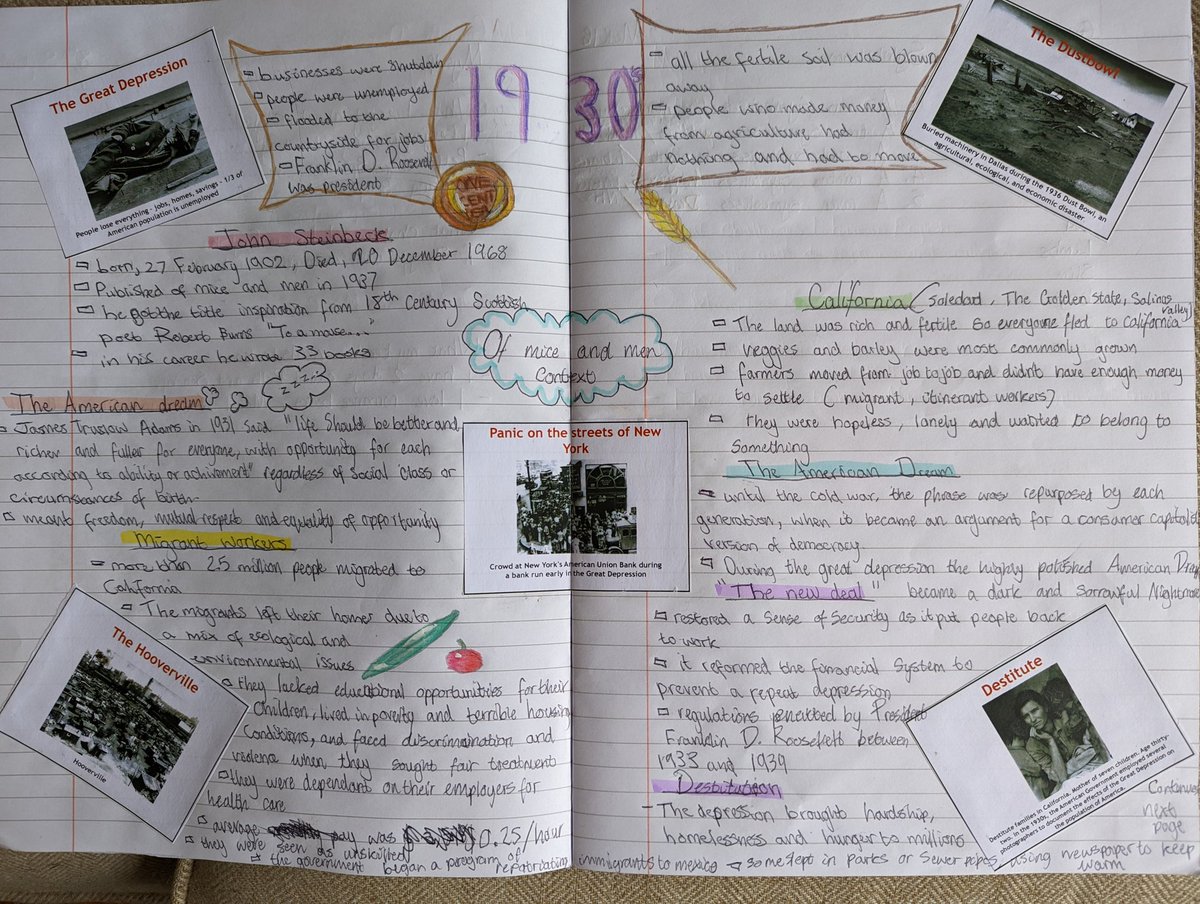 The Great Depression
People lose everything - jobs, homes, savings - 1/3 of
American population is unemployed
businesses were shutdown
people were unemployed
flooded to the
countryside for jobs
Franklin D. Roosevelt
was president
1930's
ONE
CENT
all the fertile soil was blown
away
people who made money
from agriculture had
nothing and had to move
The Dustbowl
Buried machinery in Dallas during the 1936 Dust Bowl, an
agricultural, ecological, and economic disaster
John Steinbeck
born, 27 February 1902, Died, 20 December 1968
Published of mice and men in 1937
he got the title inspiration from 18th Century Scottish
poet Robert Burns "To a mouse..."
in his career he wrote 33 books
The American dream
zzz...
James Truslow Adams in 1931 said "life should be better and
richer and fuller for everyone, with opportunity for each
according to ability or achivement" regardless of social class or
circumstances of birth
meant freedom, mutual respect and equality of opportunity
Migrant workers
more than 2.5 million people migrated to
California
The migrants left their homes due to
a mix of ecological and
environmental issues
they lacked educational opportunities for their
children, lived in poverty and terrible housing
conditions, and faced discrimination and
violence when they sought fair treatment
they were dependant on their employers for
health care
average pay was 0.25/hour
they were seen as unskilled
the government began a program of repatriating immigrants to mexico
The Hooverville
Hooverville
Of mice and men
context
Panic on the streets of New
York
Crowd at New York's American Union Bank during
a bank run early in the Great Depression
California (Soledad, The Golden State, Salinas
valley)
The land was rich and fertile so everyone fled to California
veggies and barley were most commonly grown
farmers moved from job to job and didn't have enough money
to settle (migrant, itinerant workers)
They were hopeless, lonely and wanted to belong to
something
The American Dream
until the cold war, the phrase was repurposed by each
generation, when it became an argument for a consumer capitalist
version of democracy.
During the great depression the highly polished American Dream
became a dark and sorrowful Nightmare
"The new deal"
restored a sense of security as it put people back
to work
it reformed the financial system to
prevent a repeat depression
regulations by President
Franklin D. Roosefelt between
1933 and 1939
Destitution
The depression brought hardship,
homelessness and hunger to millions
some slept in parks or sewer pipes using newspaper to keep
warm
Destitute
Destitute families in California. Mother of seven children. Age thirty-
two. In the 1930s, the American Government employed several
photographers to document the effects of the Great Depression on
the population of America.
Continues
next
page